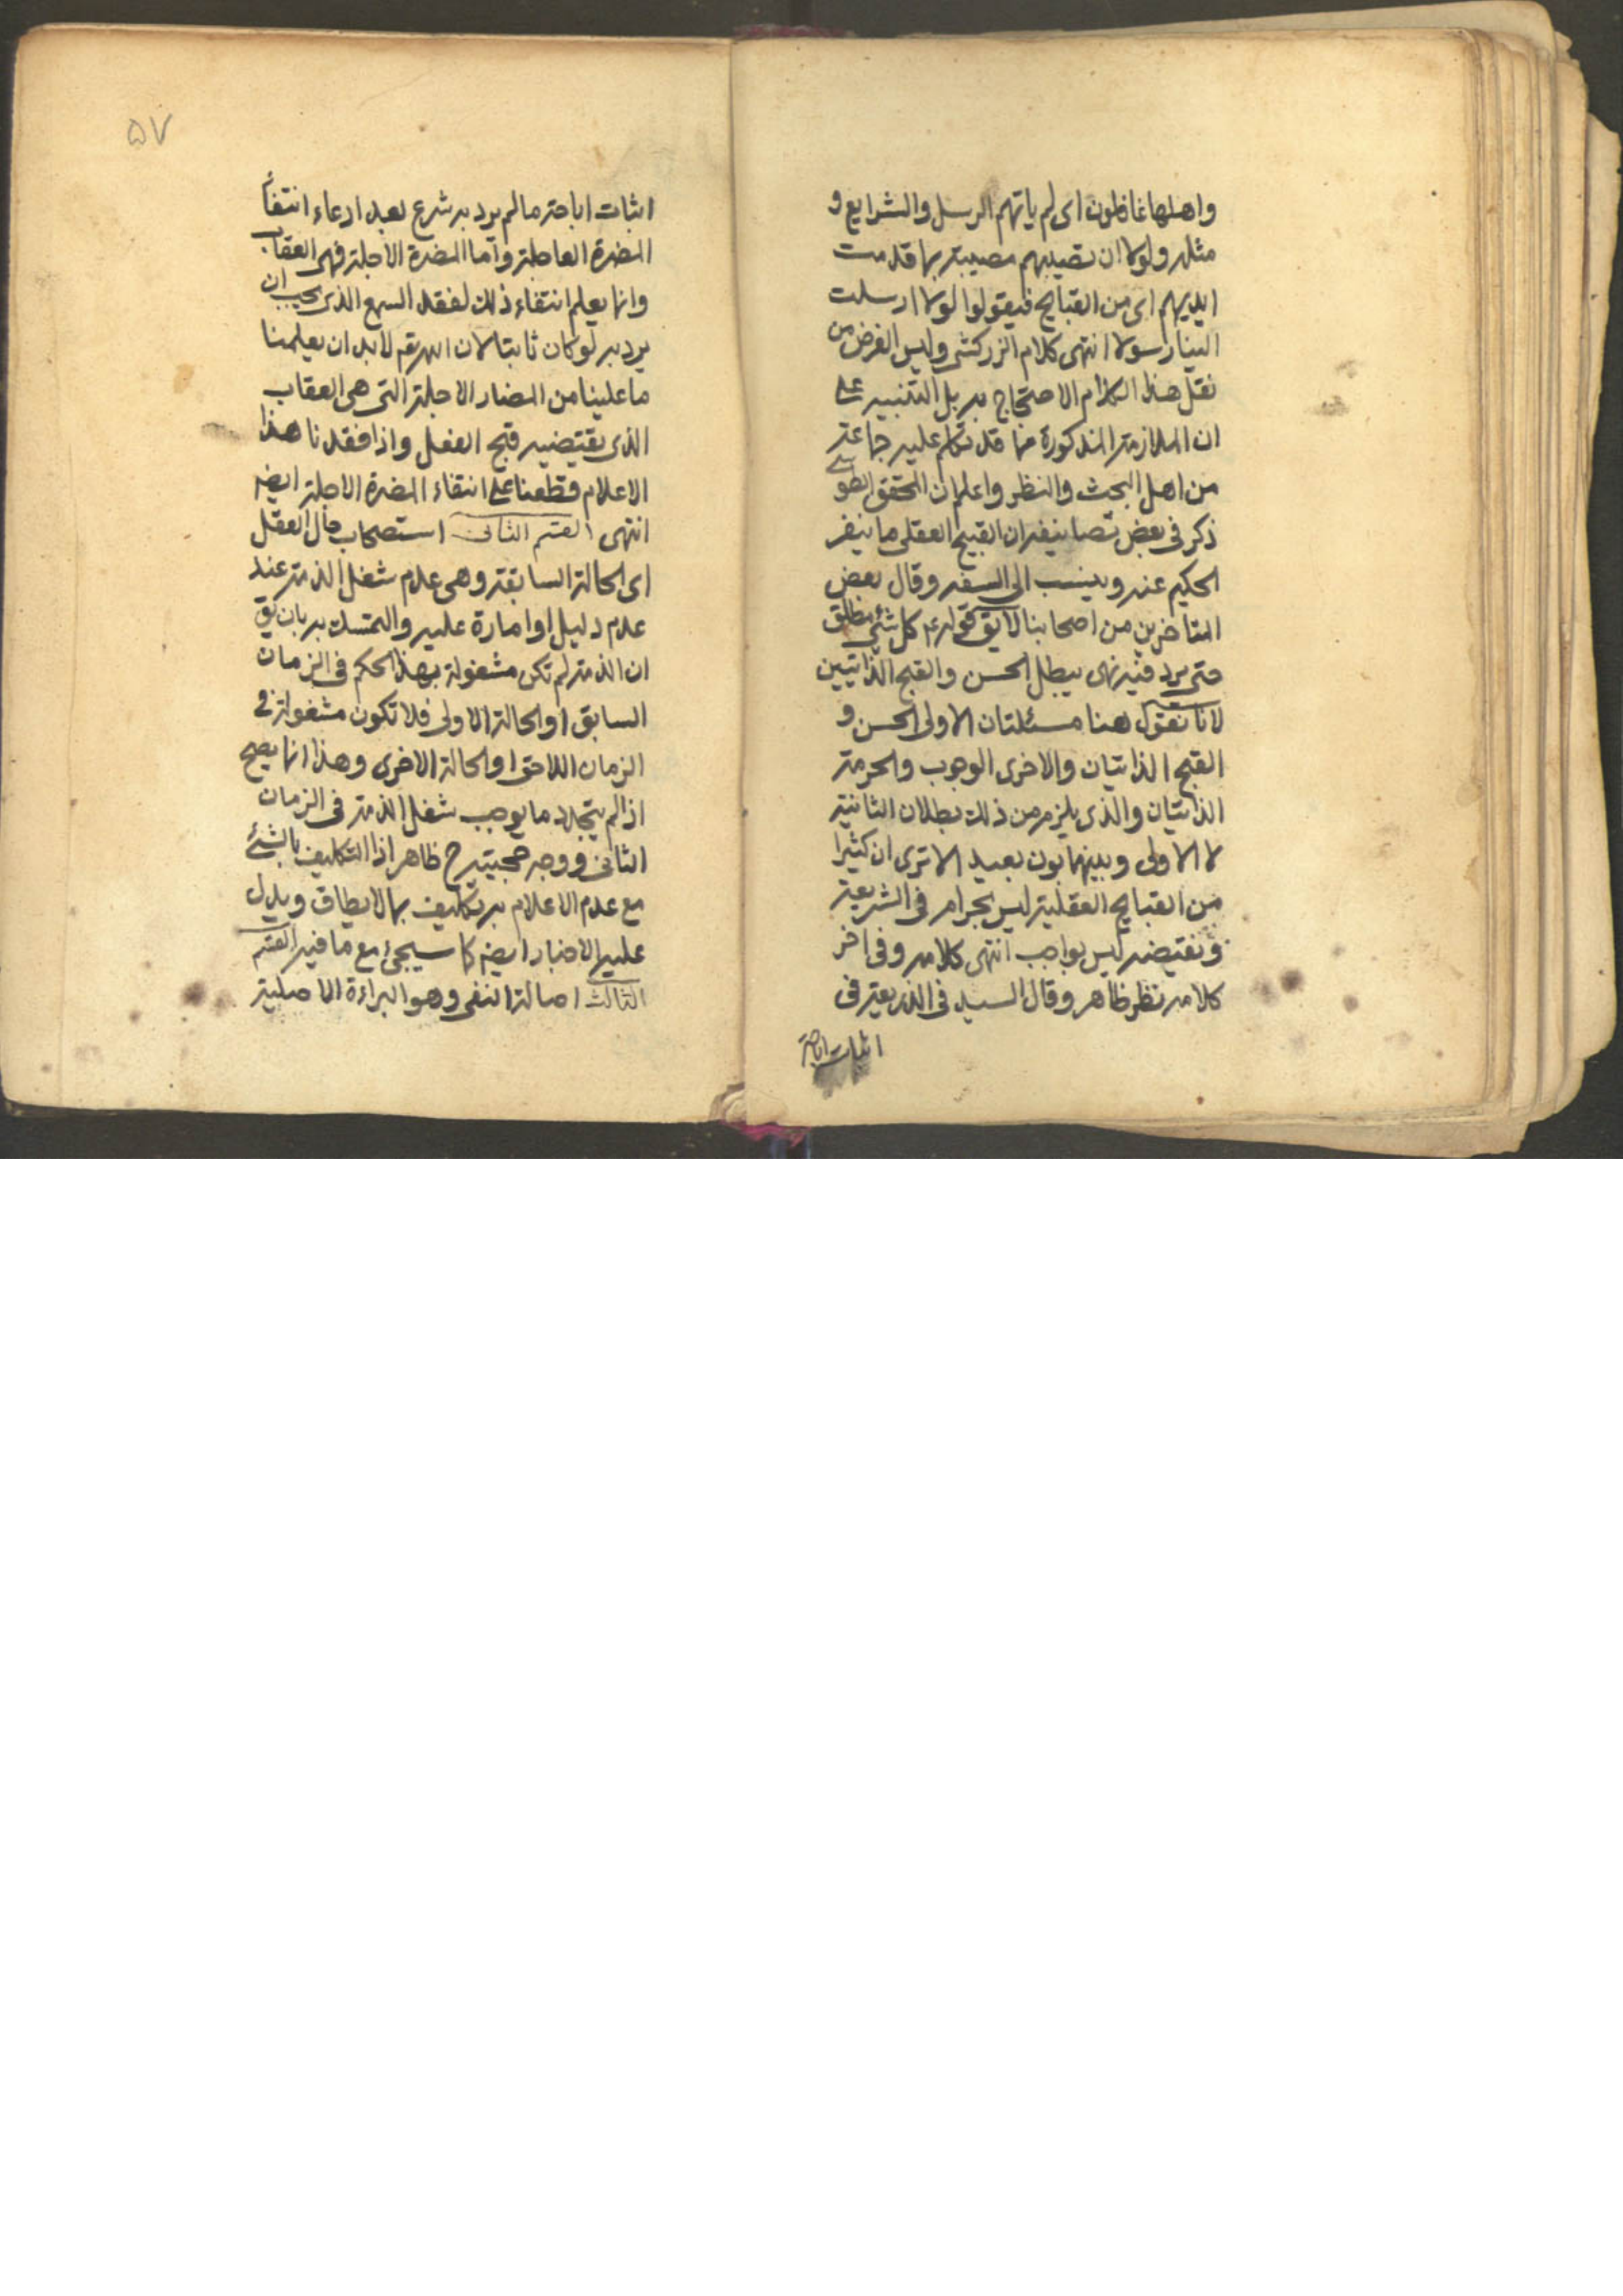 واهلها غافلون اى لم ياتهم الرسل والشرايع و
مثله ولولا ان تصيبهم مصيبة بما قدمت
ايديهم اى من القبايح فيقولوا لولا ارسلت
الينا رسولا انتهى كلام الزركشى وليس الغرض من
نقل هذا الكلام الاحتجاج به بل التنبيه على
ان الملازمة المذكورة مما قد تكلم عليه جماعة
من اهل البحث والنظر واعلم ان المحقق الطوسى
ذكر فى بعض تصانيفه ان القبيح العقلى ما ينفر
الحكيم عنه وينسب الى السفه وقال بعض
المتاخرين من اصحابنا لا يق قوله ع كل شئ مطلق
حتى يرد فيه نهى يبطل الحسن والقبح الذاتيين
لانا نقول هنا مسئلتان الاولى الحسن و
القبح الذاتيان والاخرى الوجوب والحرمة
الذاتيان والذى يلزم من ذلك بطلان الثانية
لا الاولى وبينهما بون بعيد الا ترى ان كثيرا
من القبايح العقلية ليس بحرام فى الشريعة
ونقيضه ليس بواجب انتهى كلامه وفى اخر
كلامه نظر ظاهر وقال السيد فى الذريعة فى
اثبات اباحة
۵۷
اثبات اباحة ما لم يرد به شرع بعد ادعاء انتفاء
المضرة العاجلة واما المضرة الاجلة فهى العقاب
وانما يعلم انتفاء ذلك لفقد السمع الذى يجب ان
يرد به لو كان ثابتا لان الله تع لا بد ان يعلمنا
ما علينا من المضار الاجلة التى هى العقاب
الذى يقتضيه قبح الفعل واذا فقدنا هذا
الاعلام قطعنا على انتفاء المضرة الاجلة ايضا
انتهى القسم الثانى استصحاب حال العقل
اى الحالة السابقة وهى عدم شغل الذمة عند
عدم دليل او امارة عليه والتمسك به بان يق
ان الذمة لم تكن مشغولة بهذا الحكم فى الزمان
السابق او الحالة الاولى فلا تكون مشغولة فى
الزمان اللاحق او الحالة الاخرى وهذا انما يصح
اذا لم يتجدد ما يوجب شغل الذمة فى الزمان
الثانى ووجه حجيته ح ظاهر اذ التكليف بالشئ
مع عدم الاعلام به تكليف بما لا يطاق ويدل
عليه الاخبار ايضا كما سيجئ مع ما فيه القسم
الثالث اصالة النفى وهو البراءة الاصلية